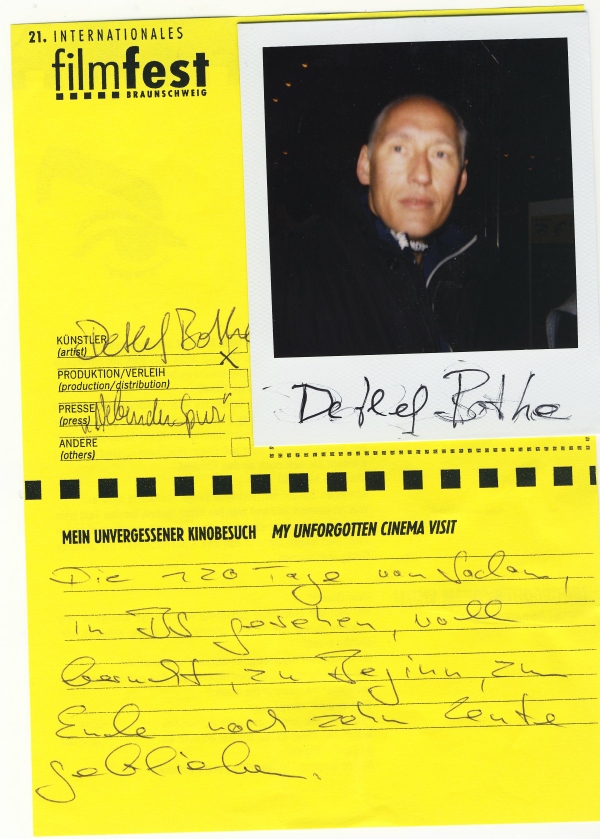 21. INTERNATIONALES
filmfest
BRAUNSCHWEIG
KÜNSTLER Detlef Bothe
(artist)
X
PRODUKTION/VERLEIH
(production/distribution)
PRESSE "Neben der Spur"
(press)
ANDERE
(others)
Detlef Bothe
MEIN UNVERGESSENER KINOBESUCH MY UNFORGOTTEN CINEMA VISIT
Die 120 Tage von Sodom,
in BS gesehen, voll
besucht, zu Beginn, zum
Ende noch zehn Leute
geblieben.